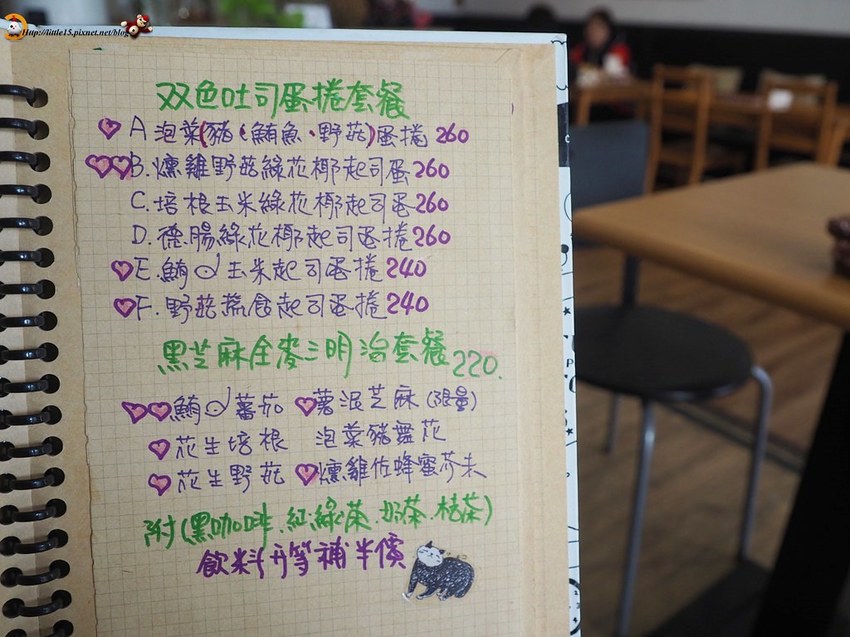 Http://little15.pixnet.net/blog
双色吐司蛋捲套餐
A 泡菜(豬、鮪魚、野菇)蛋捲 260
B.燻雞野菇綠花椰起司蛋 260
C.培根玉米綠花椰起司蛋 260
D.德腸綠花椰起司蛋捲 260
E.鮪 玉米起司蛋捲 240
F.野菇蔬食起司蛋捲 240
黑芝麻全麥三明治套餐 220.
鮪 蕃茄 薯泥芝麻(限量)
花生培根 泡菜豬舞花
花生野菇 燻雞佐蜂蜜芥末
附(黑咖啡.紅.綠茶.奶茶.桔茶)
飲料升等補半價